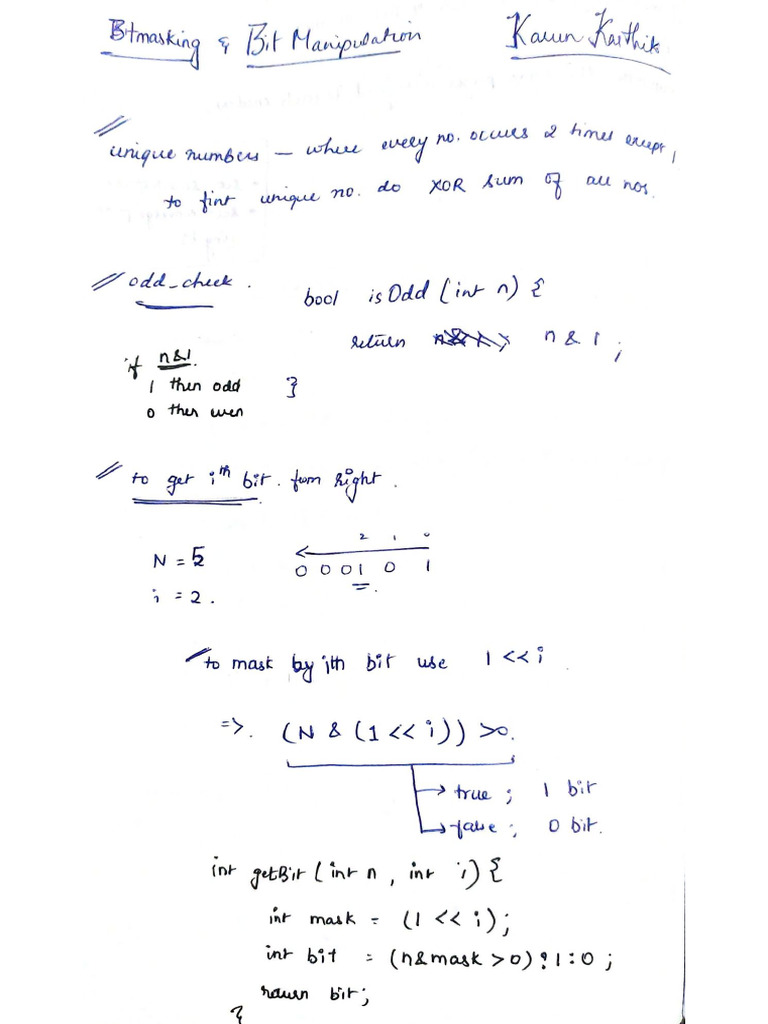 Bitmasking & Bit Manipulation Karun Karthik
unique numbers – where every no. occurs 2 times except 1
to fint unique no. do XOR sum of all nos.
odd_check. bool isOdd (int n) {
return n & 1 ;
if n&1.
1 then odd }
0 then even
to get ith bit. from right.
2 1 0
N = 5 0 0 0 1 0 1
i = 2.
to mask by ith bit use 1 << i
=>. (N & (1 << i)) >0.
true ; 1 bit
false ; 0 bit.
int getBit (int n , int i) {
int mask = (1 << i);
int bit = (n&mask > 0) ? 1 : 0 ;
return bit;
}